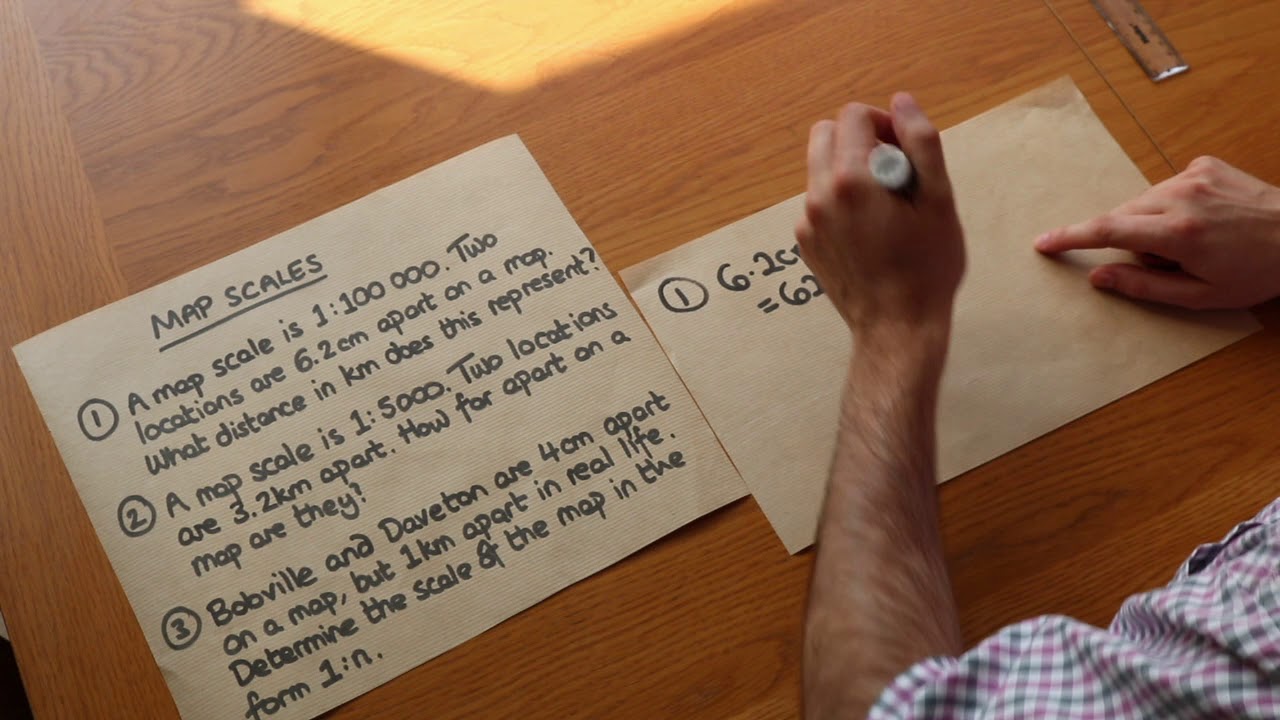 MAP SCALES
① A map scale is 1:100 000. Two
locations are 6.2cm apart on a map.
What distance in km does this represent?
② A map scale is 1:5000. Two locations
are 3.2km apart. How far apart on a
map are they?
③ Bobville and Daveton are 4cm apart
on a map, but 1km apart in real life.
Determine the scale of the map in the
form 1:n.
① 6.2c
=62